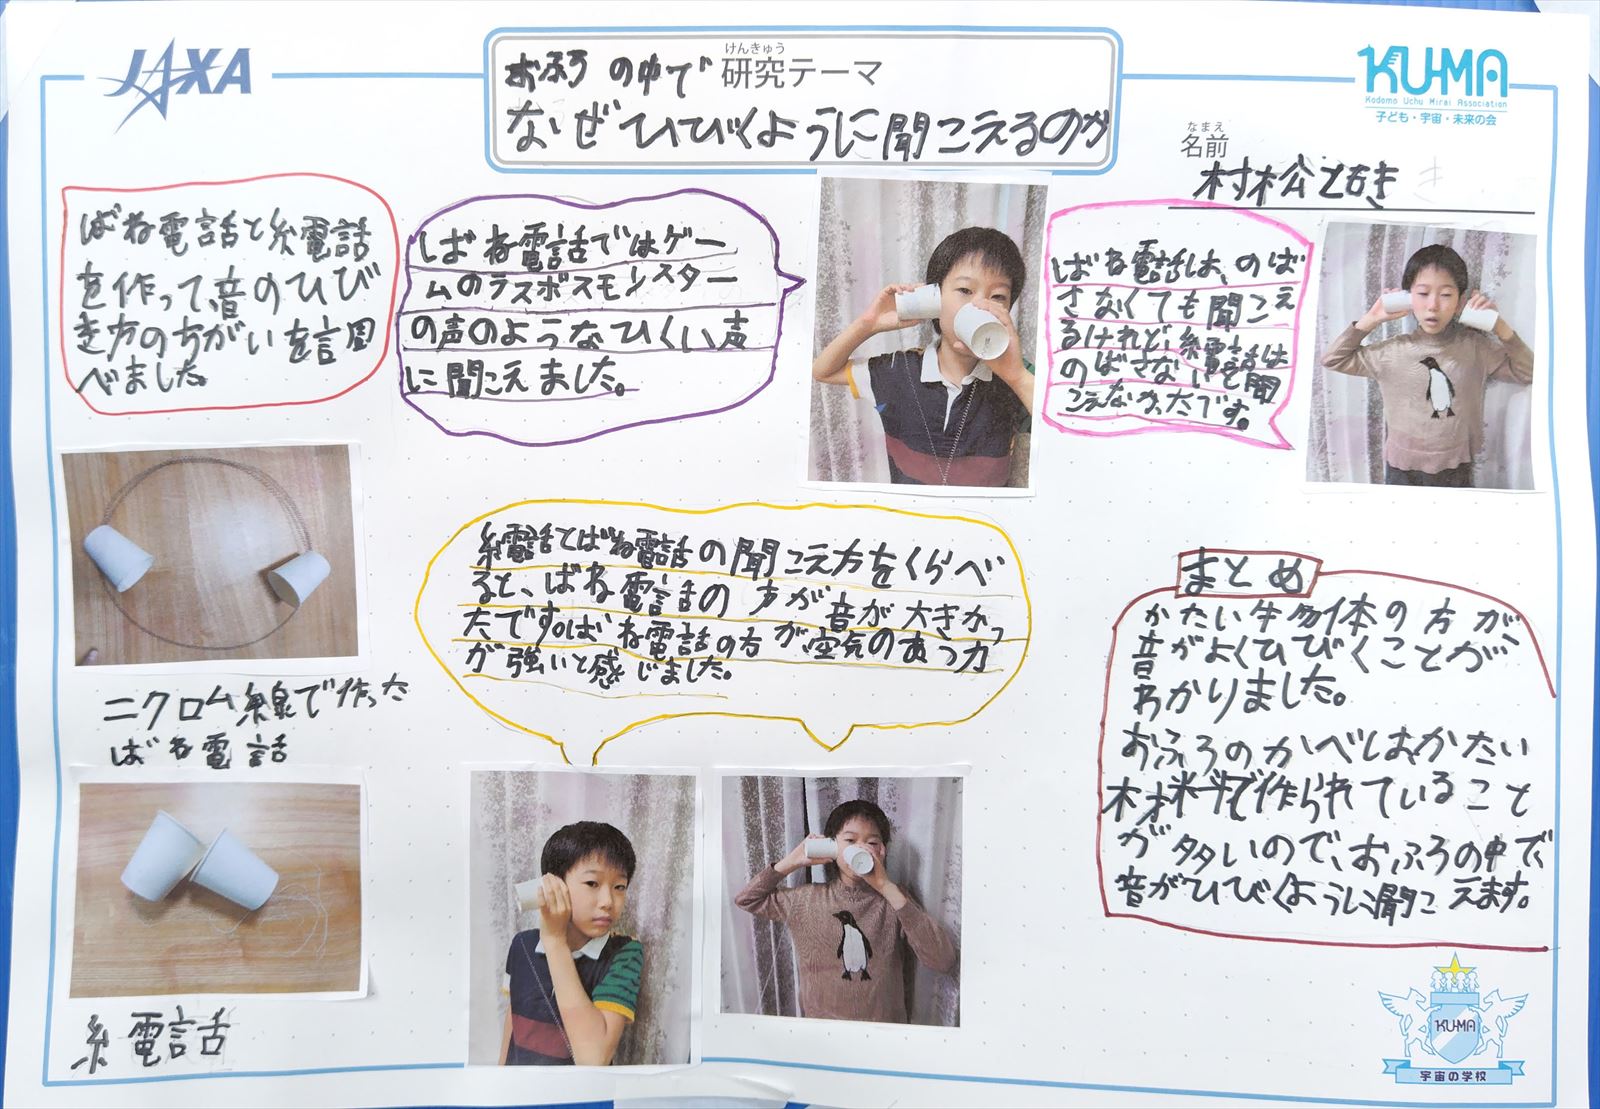 JAXA
おふろの中で
けんきゅう
研究テーマ
なぜひびくように聞こえるのか
KU-MA
Kodomo Uchu Mirai Association
子ども・宇宙・未来の会
なまえ
名前
村松ともき
ばね電話と糸電話
を作って、音のひび
き方のちがいを調
べました。
ばね電話ではゲー
ムのラスボスモンスター
の声のようなひくい声
に聞こえました。
ばね電話は、のば
さなくても聞こえ
るけれど、糸電話は
のばさないと聞
こえなかったです。
ニクロム線で作った
ばね電話
糸電話
糸電話とばね電話の聞こえ方をくらべ
ると、ばね電話の方が音が大きかっ
たです。ばね電話の方が空気のあつ力
が強いと感じました。
まとめ
かたい物体の方が、
音がよくひびくことが
わかりました。
おふろのかべはかたい
材料で作られていること
が多いので、おふろの中で、
音がひびくように聞こえます。
KU-MA
宇宙の学校